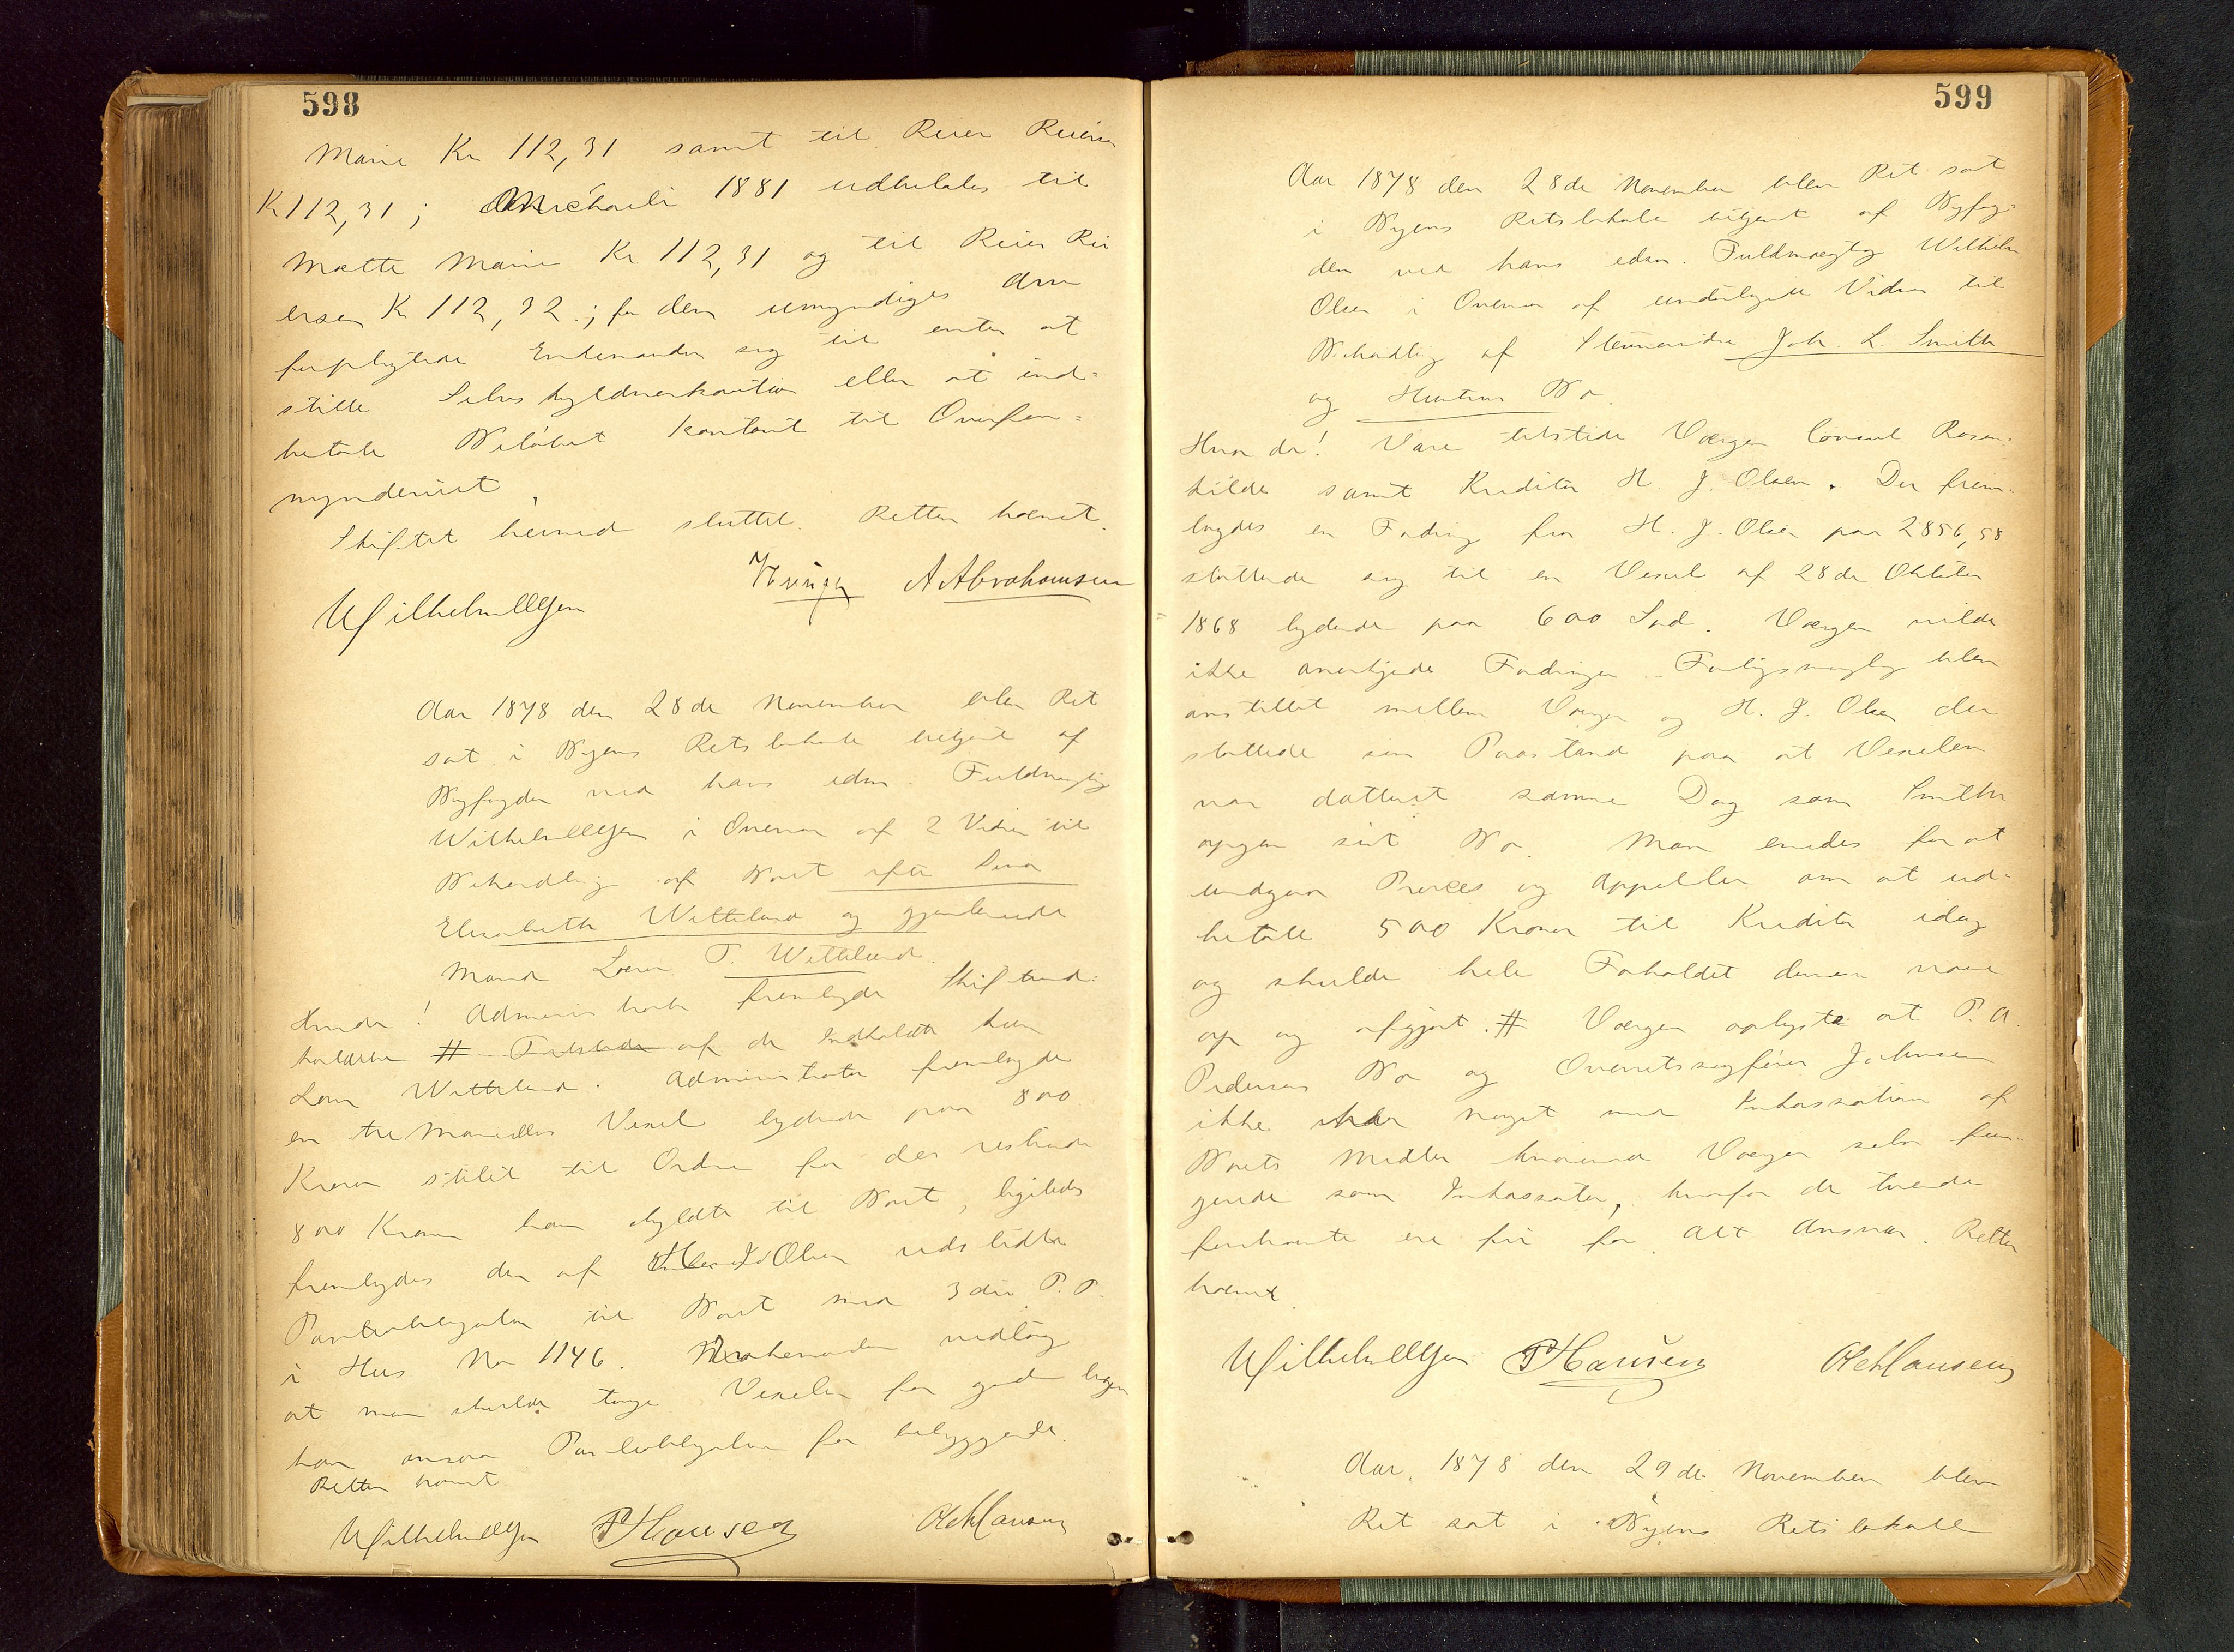 598
Marie Kr 112,31 samt til Reier Reiersen
Kr 112,31; Michaeli 1881 udbetales til
Mætte Marie Kr 112,31 og til Reier Rei
ersen Kr 112,32; for den umyndiges Arv
forpligtede Enkemanden sig til enten at
stille Selvskyldnerkaution eller at ind=
betale Beløbet kontant til Overfor=
mynderiet.
Skiftet hermed sluttet. Retten hævet.
A Abrahamsen
Wilhelm Olsen
Aar 1878 den 28de November blev Ret
sat i Byens Retslokale betjent af
Byfogden ved hans edsv. Fuldmægtig
Wilhelm Olsen i Overvær af 2 Vidner til
Behandling af Boet efter
Elisabeth Witteland og gjenlevende
Mand Lars T. Witteland.
Hvorda! Administrator fremlagde Skiftind=
kaldelse # Tilstede af de Indkaldte kun
Lars Witteland. Administrator fremlagde
en tre Maaneders Vexel lydende paa 800
Kroner stilet til Ordre for de resterende
800 Kroner han skyldte til Boet, ligeledes
fremlagdes den af H. J. Olsen udstedte
Panteobligation til Boet med 3die P. P.
i Hus No 1146. Enkemanden vedtog
at man skulde tage Vexelen for god
han ansaa Panteobligationen for betryggende.
Retten hævet
Wilhelm Olsen P Hansen Ole Hansen
599
Aar 1878 den 28de November blev Ret sat
i Byens Retslokale betjent af Byfog=
den ved hans edsv. Fuldmægtig Wilhelm
Olsen i Overvær af undertegnede Vidner til
Behandling af Joh. L. Smith
og Hustrus Bo.
Hvor da! Vare tilstede Værgen Consul Rosen=
kilde samt Kreditor H. J. Olsen. Der frem=
lagdes en Fordring fra H. J. Olsen paa 2856,58
støttende sig til en Vexel af 28de Oktober
1868 lydende paa 600 Spd. Værgen vilde
ikke anerkjende Fordringen. Forligsmægling blev
anstillet mellem Værgen og H. J. Olsen der
støttede sin Paastand paa at Vexelen
var datteret samme Dag som Smith
opgav sit Bo. Man enedes for at
undgaa Proces og Appeller om at ud=
betale 500 Kroner til Kreditor idag
og skulde hele Forholdet dermed være
op og afgjort. # Værgen oplyste at P. A.
Pedersens Bo og Overretssagfører Johnsen
ikke har noget med Inkassation af
Boets Midler hvorimod Værgen selv fun=
gerede som Inkassator, hvorfor de tvende
førstnævnte ere fri for Alt Ansvar. Retten
hævet.
Wilhelm Olsen P Hansen Ole Hansen
Aar 1878 den 29de November blev
Ret sat i Byens Retslokale